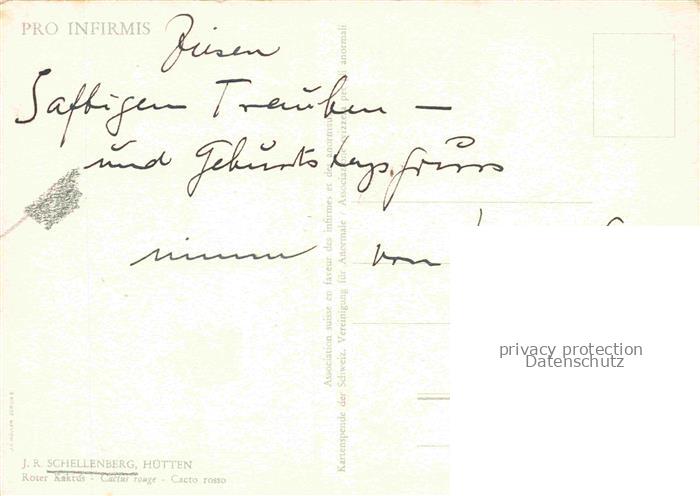 PRO INFIRMIS
Diesen
Saftigen Trauben –
und Geburtstagsgruss
nimm von
Association suisse en faveur des infirmes et des anormaux
Kartenspende der Schweiz. Vereinigung für Anormale / Associazione svizzera pro anormali
privacy protection
Datenschutz
J. R. SCHELLENBERG, HÜTTEN
Roter Kaktus - Cactus rouge - Cacto rosso